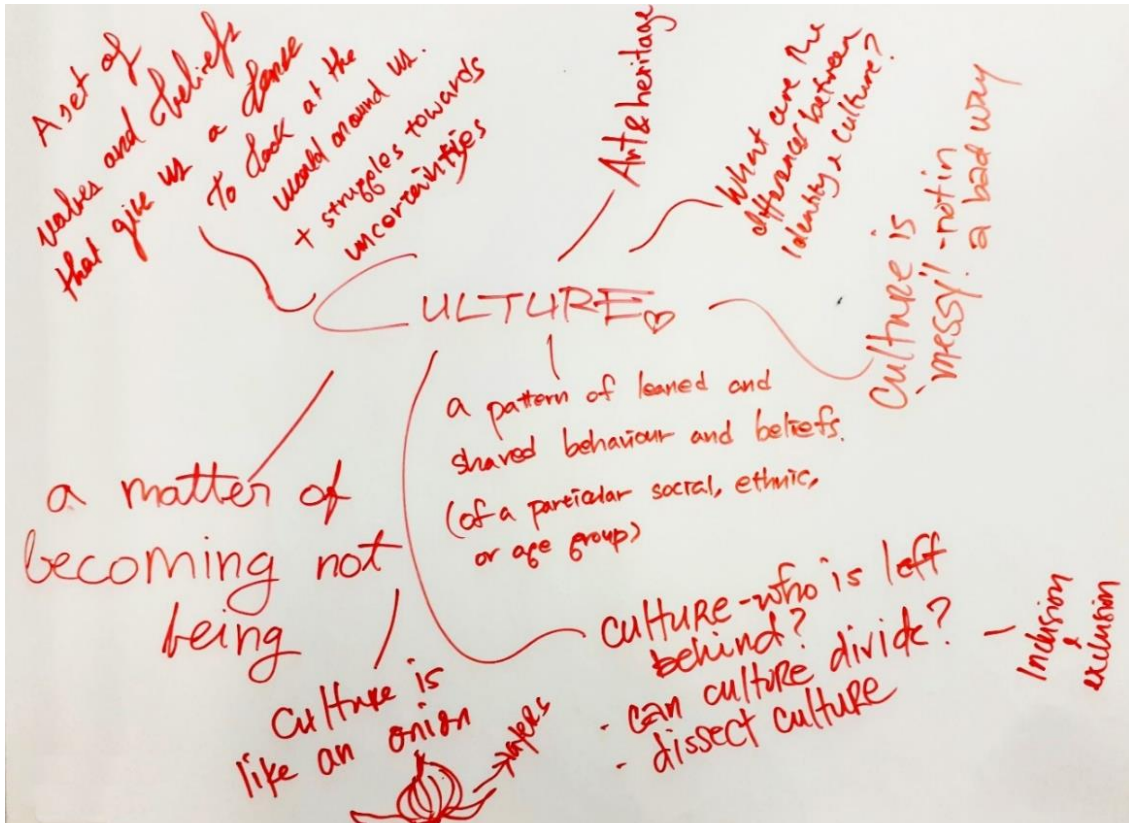 A set of
values and beliefs
that give us a sense
to look at the
world around us.
+ struggles towards
uncertainties
Art & heritage
What are the
differences between
identity & culture?
culture is
'messy' - not in
a bad way
CULTURE
a pattern of leaned and
shared behaviour and beliefs.
(of a particular social, ethnic,
or age group)
a matter of
becoming not
being
culture is
like an onion
layers
culture - who is left
behind?
- can culture divide?
- dissect culture
Inclusion
&
exclusion